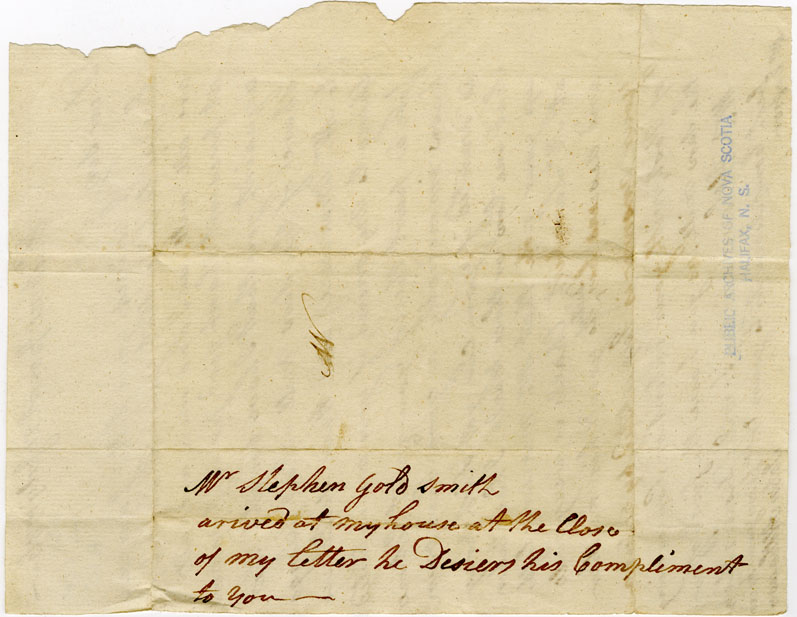 PUBLIC ARCHIVES OF NOVA SCOTIA
HALIFAX, N. S.
Mr Stephen Gold smith
arived at my house at the Close
of my letter he Desiers his Compliment
to you —